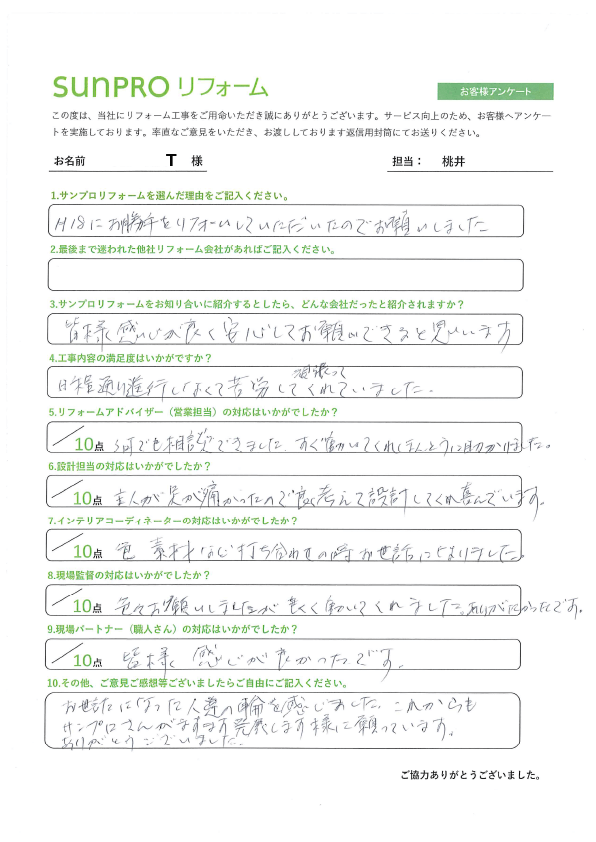 sunPRO リフォーム
お客様アンケート
この度は、当社にリフォーム工事をご用命いただき誠にありがとうございます。サービス向上のため、お客様へアンケー
トを実施しております。率直なご意見をいただき、お渡ししております返信用封筒にてお送りください。
お名前 T 様 担当： 桃井
1.サンプロリフォームを選んだ理由をご記入ください。
H18にお勝手をリフォームしていただいたのでお願いしました
2.最後まで迷われた他社リフォーム会社があればご記入ください。
3.サンプロリフォームをお知り合いに紹介するとしたら、どんな会社だったと紹介されますか？
皆様感じが良く安心してお願いできると思います
4.工事内容の満足度はいかがですか？
日程通り進行しなくて苦労して頑張ってくれていました.
5.リフォームアドバイザー（営業担当）の対応はいかがでしたか？
／10点 何でも相談できました. すぐ動いてくれほんとうに助かりました。
6.設計担当の対応はいかがでしたか？
／10点 主人が足が痛かったので良く考えて設計してくれ喜んでいます.
7.インテリアコーディネーターの対応はいかがでしたか？
／10点 色 素材など打ち合わせの時お世話になりました.
8.現場監督の対応はいかがでしたか？
／10点 色々お願いしましたが良く動いてくれました。ありがたかったです.
9.現場パートナー（職人さん）の対応はいかがでしたか？
／10点 皆様 感じが良かったです.
10.その他、ご意見ご感想等ございましたらご自由にご記入ください。
お世話になった人達の輪を感じました. これからも
サンプロさんがますます発展します様に願っています.
ありがとうございました.
ご協力ありがとうございました。